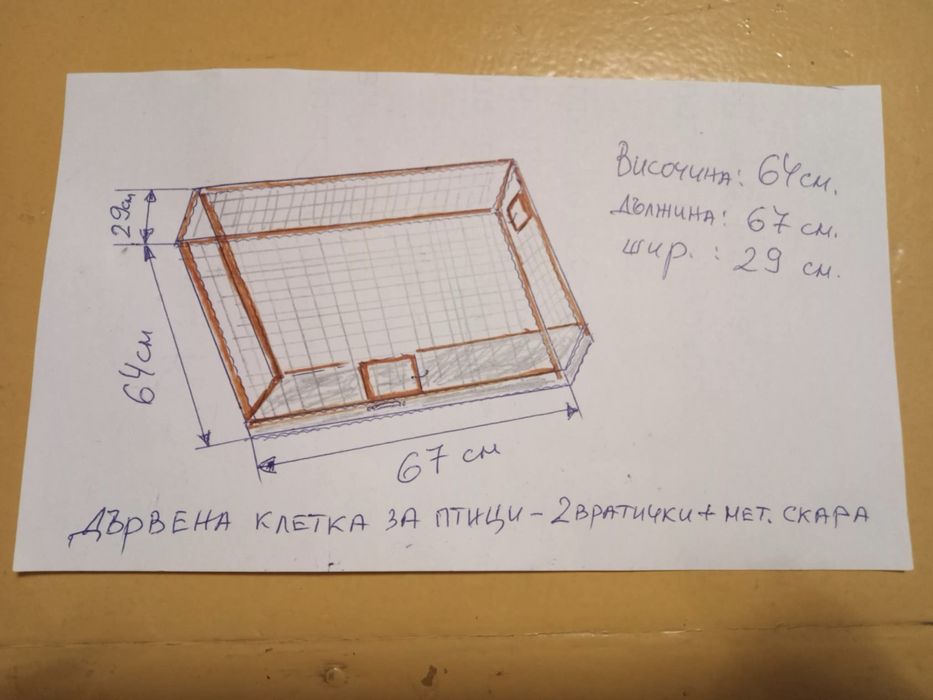 Височина: 64см.
Дължина: 67 см.
шир. : 29 см.
29см
64см
67 см
ДЪРВЕНА КЛЕТКА ЗА ПТИЦИ - 2 ВРАТИЧКИ + МЕТ. СКАРА